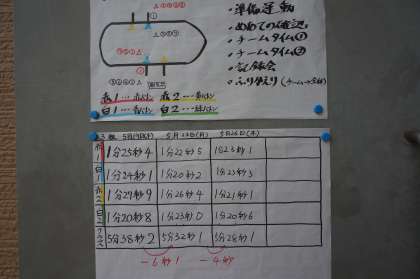 ・準備運動
・めあての確認
・チームタイム①
・チームタイム②
・記録会
・ふりかえり(チーム→全体)
赤1
赤2
白1
白2
5月23日(月)
5月26日(木)
赤1 1分25秒4 1分22秒5 1分23秒1
白1 1分24秒1 1分20秒2 1分23秒5
赤2 1分27秒9 1分26秒4 1分21秒1
白2 1分20秒8 1分23秒0 1分20秒6
クラス 5分38秒2 5分32秒1 5分28秒1
-6秒1
-4秒